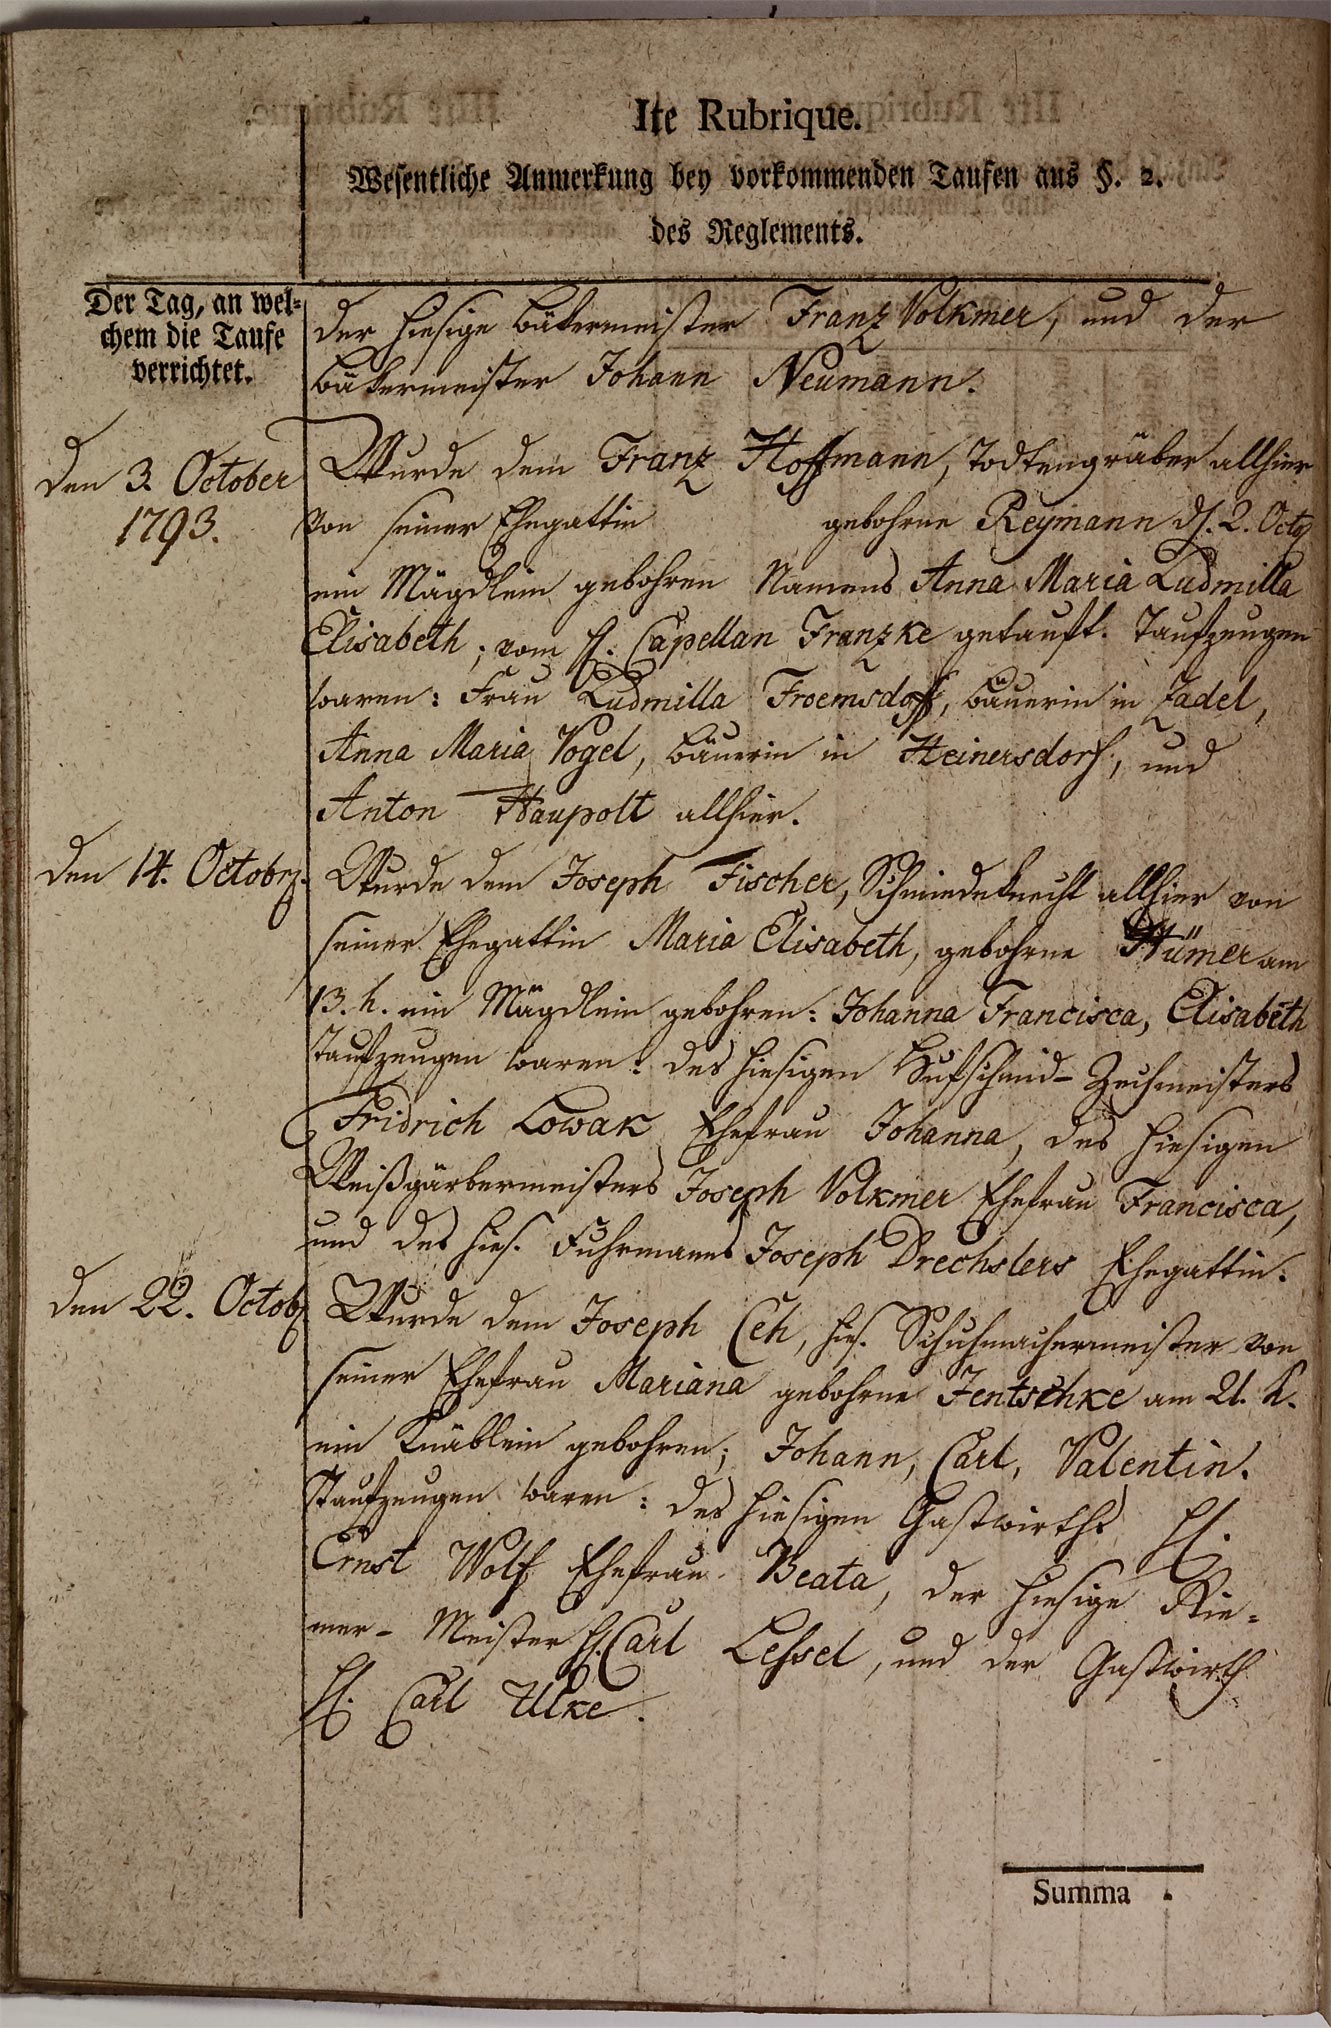 Ite Rubrique.
Wesentliche Anmerkung bey vorkommenden Taufen aus §. 2.
des Reglements.
Der Tag, an wel-
chem die Taufe
verrichtet.
der hiesige Bäkermeister Franz Volkmer, und der
Bäkermeister Johann Neumann.
den 3. October
1793.
Wurde dem Franz Hoffmann, Todtengräber allhier
von seiner Ehegattin gebohrne Reymann d. 2. Octb
ein Mägdlein gebohren Namens Anna Maria Ludmilla
Elisabeth; vom H. Capellan Franzke getauft. Taufzeugen
waren: Frau Ludmilla Froemsdoff, Bäuerin in Zadel,
Anna Maria Vogel, Bäuerin in Heinersdorf, und
Anton Haupolt allhier.
den 14. Octobr.
Wurde dem Joseph Fischer, Schmiedeknecht allhier von
seiner Ehegattin Maria Elisabeth, gebohrne am
13. h. ein Mägdlein gebohren: Johanna Francisca, Elisabeth
Taufzeugen waren: des hiesigen Hufschmid-Zechmeisters
Fridrich Lowak Ehefrau Johanna, des hiesigen
Weißgärbermeisters Joseph Volkmer Ehefrau Francisca,
und des hies. Fuhrmanns Joseph Drechslers Ehegattin.
den 22. Octob
Wurde dem Joseph Ceh, hies. Schuhmachermeister von
seiner Ehefrau Mariana gebohrne Jentschke am 21. h.
ein Knäblein gebohren; Johann, Carl, Valentin.
Taufzeugen waren: des hiesigen Gastwirths H.
Ernst Wolf Ehefrau Beata, der hiesige Rie-
mer-Meister H. Carl Lessel, und der Gastwirth
H. Carl Ulke.
Summa